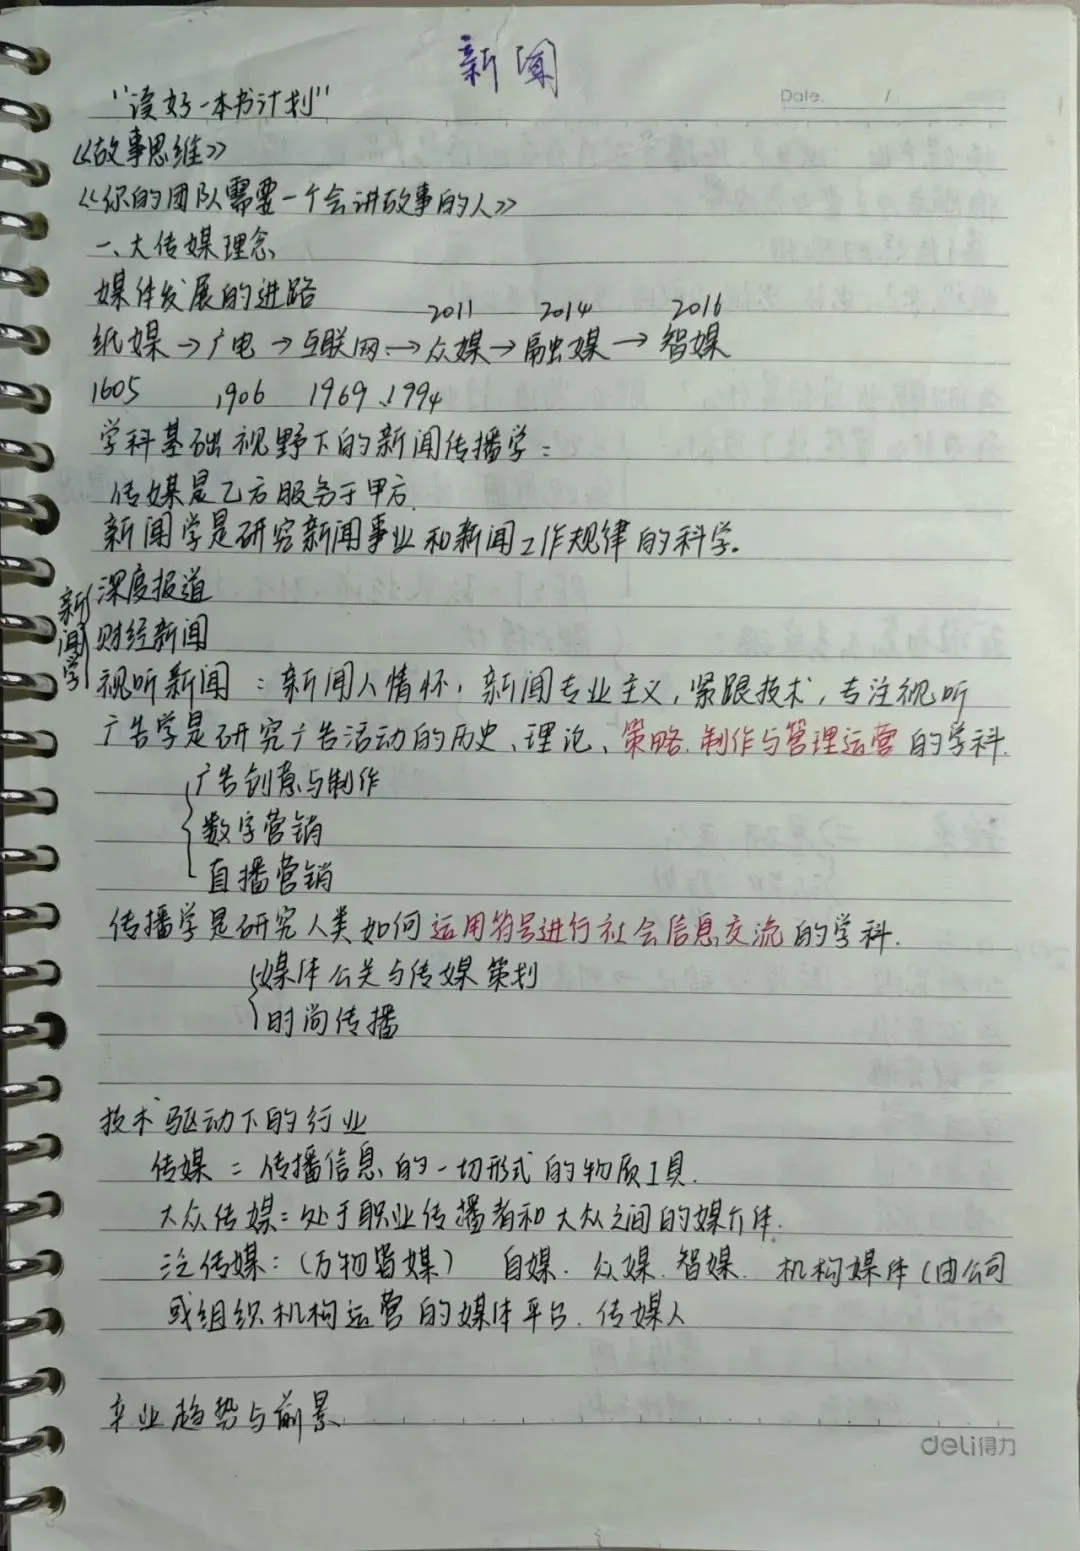 新闻
Date. /
"读好一本书计划"
《故事思维》
《你的团队需要一个会讲故事的人》
一、大传媒理念
媒体发展的进路
2011 2014 2016
纸媒→广电→互联网→众媒→融媒→智媒
1605 1906 1969、1994
学科基础视野下的新闻传播学:
传媒是乙方服务于甲方.
新闻学是研究新闻事业和新闻工作规律的科学。
新闻学 深度报道
财经新闻
视听新闻:新闻人情怀,新闻专业主义,紧跟技术,专注视听
广告学是研究广告活动的历史、理论、策略.制作与管理运营的学科.
广告创意与制作
数字营销
直播营销
传播学是研究人类如何运用符号进行社会信息交流的学科.
媒体公关与传媒策划
时尚传播
技术驱动下的行业
传媒=传播信息的一切形式的物质工具.
大众传媒:处于职业传播者和大众之间的媒介体.
泛传媒:(万物皆媒) 自媒.众媒.智媒.机构媒体(由公司
或组织机构运营的媒体平台.传媒人
业趋势与前景
deli得力